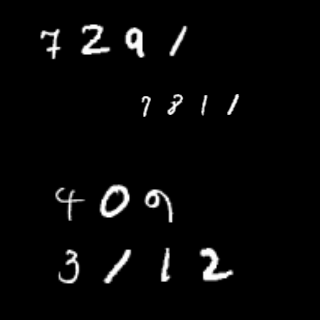 7291
7811
409
3112